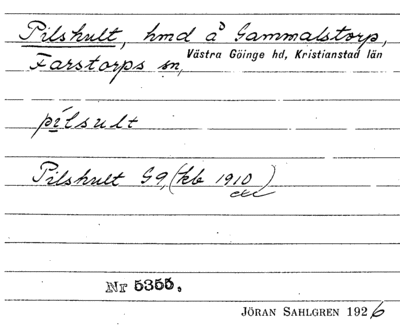 Pilshult, hmd å Gammalstorp,
Farstorps sn, Västra Göinge hd, Kristianstad län
pìlsult
Pilshult G9, (kb 1910)
Nr 5355.
JÖRAN SAHLGREN 1926